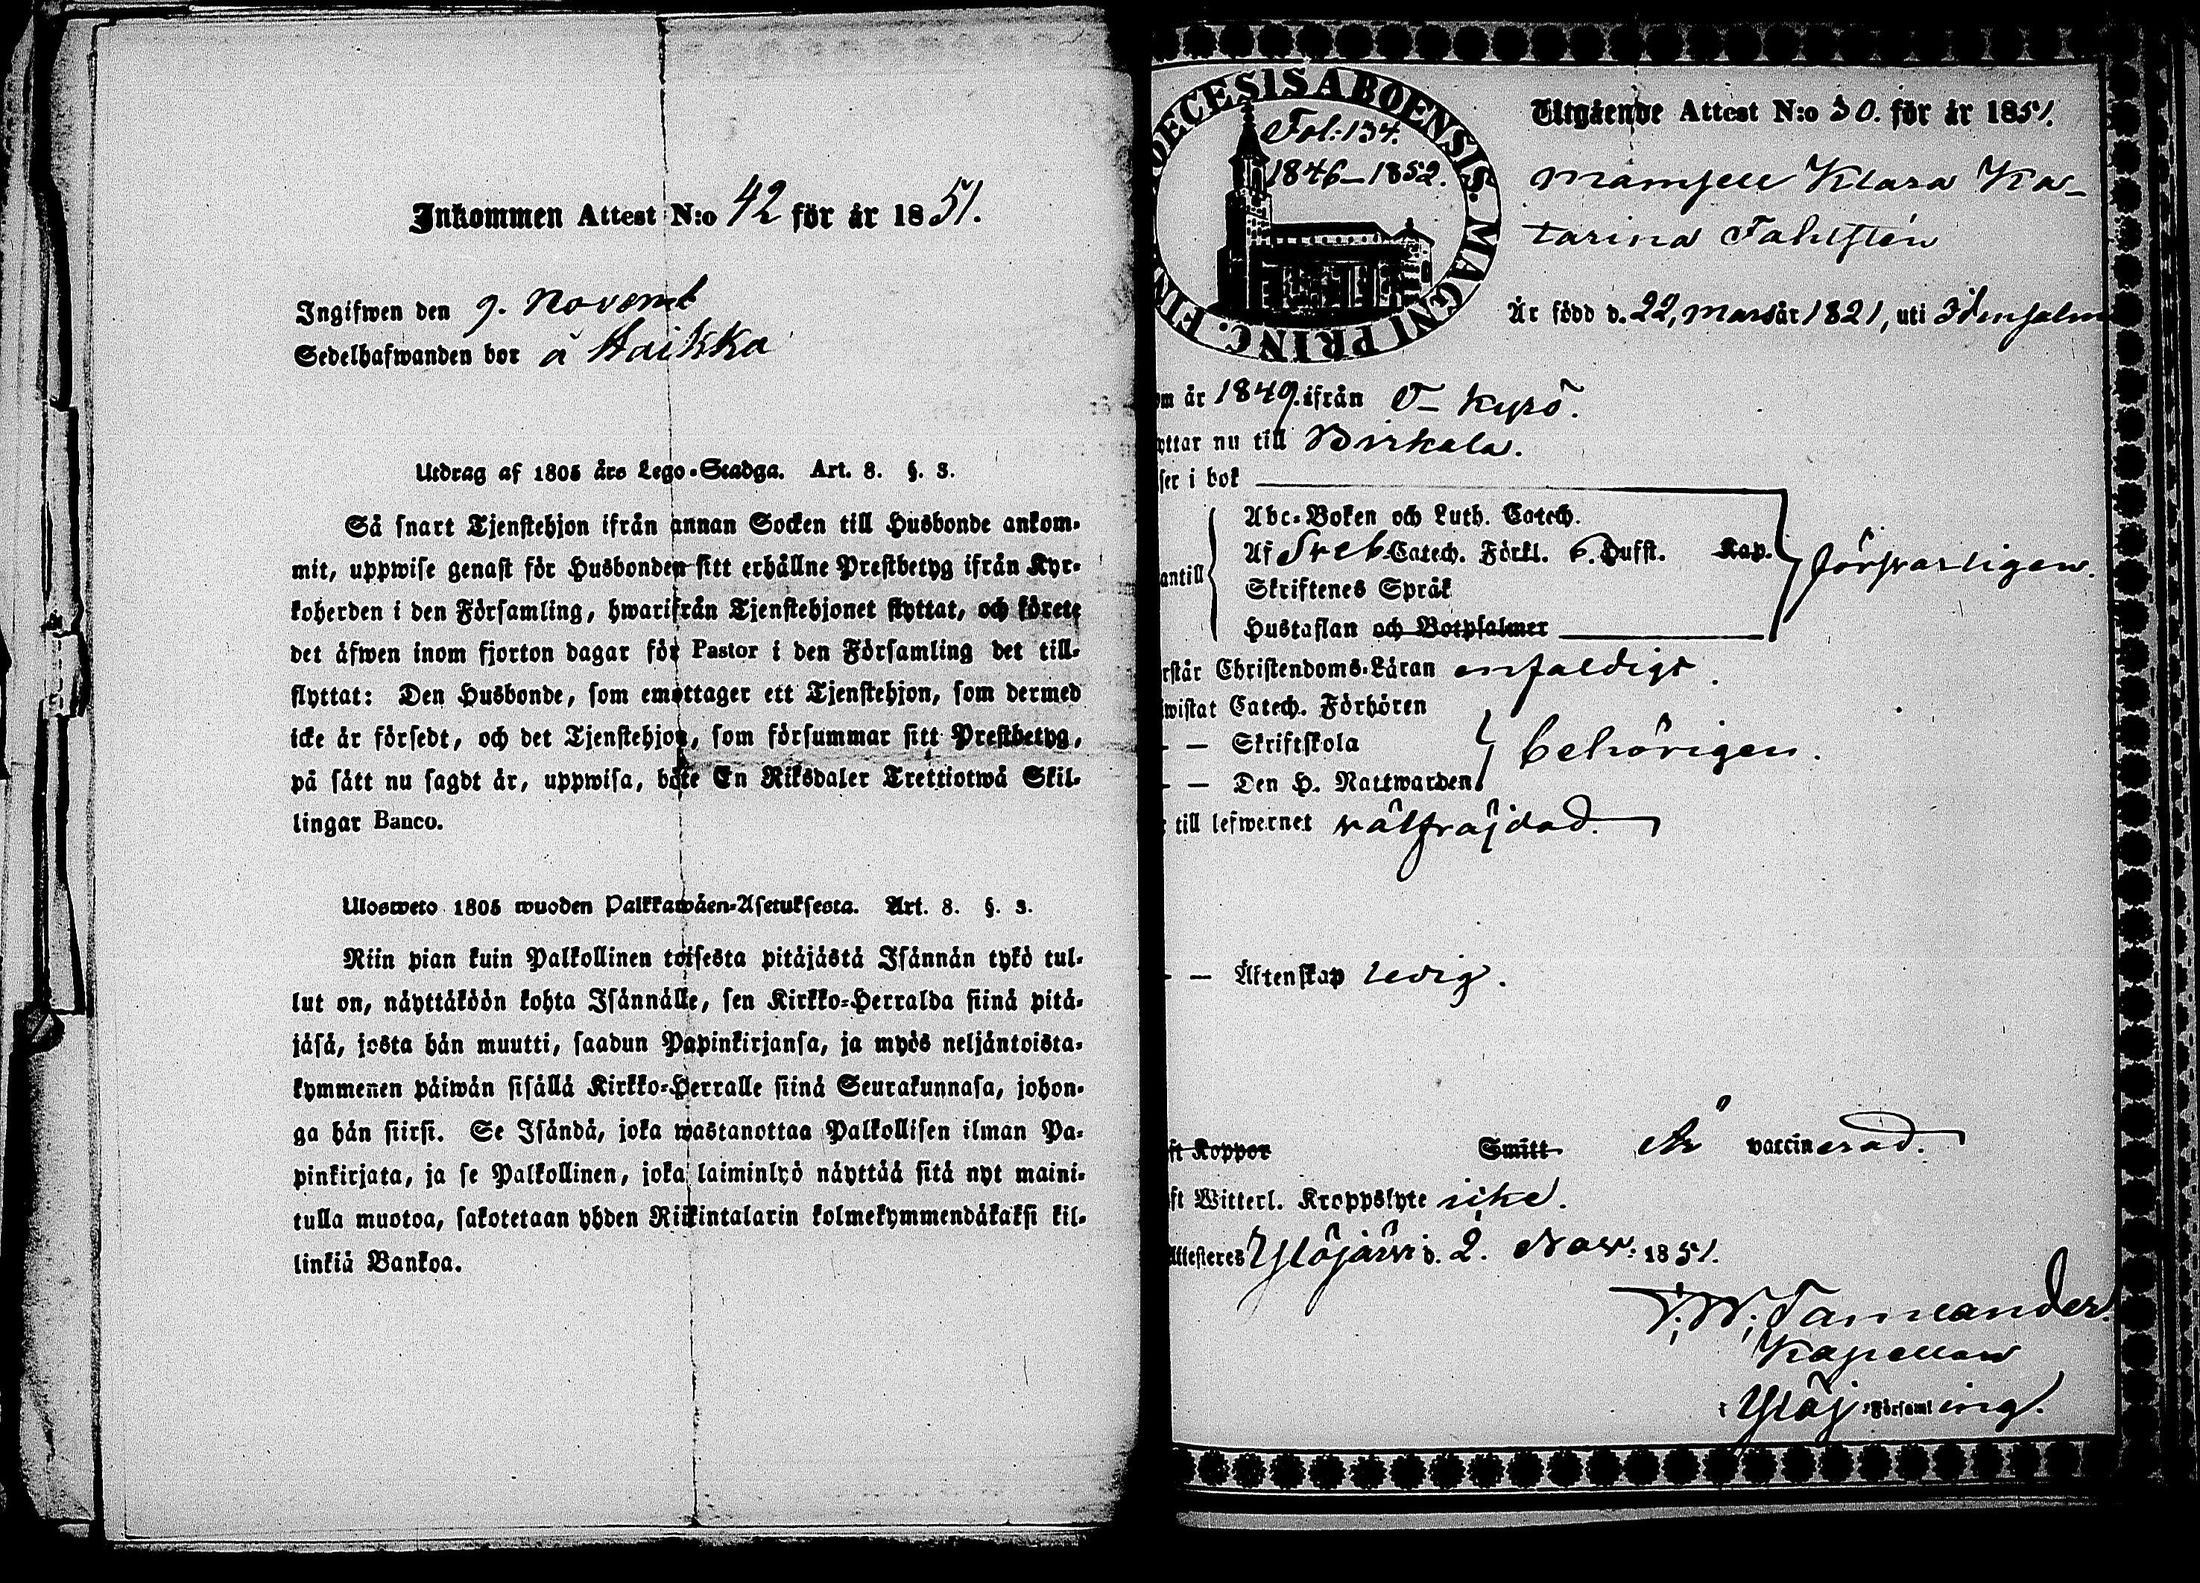 Inkommen Attest N:o 42 för år 1851.
Ingifwen den 9. Novemb
Sedelhafwanden bor å Haikka
Utdrag af 1805 års Lego-Stadga. Art. 8. §. 3.
Så snart Tjenstehjon ifrån annan Socken till Husbonde ankom-
mit, uppwise genast för Husbonden sitt erhållne Prestbetyg ifrån Kyr-
koherden i den Församling, hwarifrån Tjenstehjonet flyttat, och förete
det äfwen inom fjorton dagar för Pastor i den Församling det till-
flyttat: Den Husbonde, som emottager ett Tjenstehjon, som dermed
icke är försedt, och det Tjenstehjon, som försummar sitt Prestbetyg,
på sätt nu sagdt är, uppwisa, böte En Riksdaler Trettiotwå Skil-
lingar Banco.
Ulosweto 1805 wuoden Palkkawäen-Asetuksesta. Art. 8. §. 3.
Niin pian kuin Palkollinen toisesta pitäjästä Isännän tykö tul-
lut on, näyttäköön kohta Isännälle, sen Kirkko-Herralda siinä pitä-
jäsä, josta hän muutti, saadun Papinkirjansa, ja myös neljäntoista-
kymmenen päiwän sisällä Kirkko-Herralle siinä Seurakunnasa, johon-
ga hän siirsi. Se Isändä, joka wastanottaa Palkollisen ilman Pa-
pinkirjata, ja se Palkollinen, joka laiminlyö näyttää sitä nyt maini-
tulla muotoa, sakotetaan yhden Riikintalarin kolmekymmendäkaksi kil-
linkiä Bankoa.
DECESIS ABOENSIS. MAGNI PRINC. FIN
Fol: 134.
1846–1852.
Utgående Attest N:o 30. för år 1851.
Mamsell Klara Ka-
tarina Fahlstén
Är född d. 22, Mars år 1821, uti Idensalm
om år 1849. ifrån T– Kyrö.
yttar nu till Birkala.
ser i bok
Abc-Boken och Luth. Catech.
Af Sveb. Catech. Förkl. 6. Hufst. Kap.
försvarligen.
antill
Skriftenes Språk
Hustaflan och Botpsalmer
rstår Christendoms-Läran enfaldigt.
wistat Catech. Förhören
– – Skriftskola
behörigen.
– – Den H. Nattwarden
till lefwernet välfräjdad.
– – Äktenskap ledig.
ft Koppor Smitt Är vaccinerad.
ft Witterl. Kroppslyte icke.
Attesteres Ylöjärvi d. 2. Nov. 1851.
Kapellan
i Ylöj. Församling.